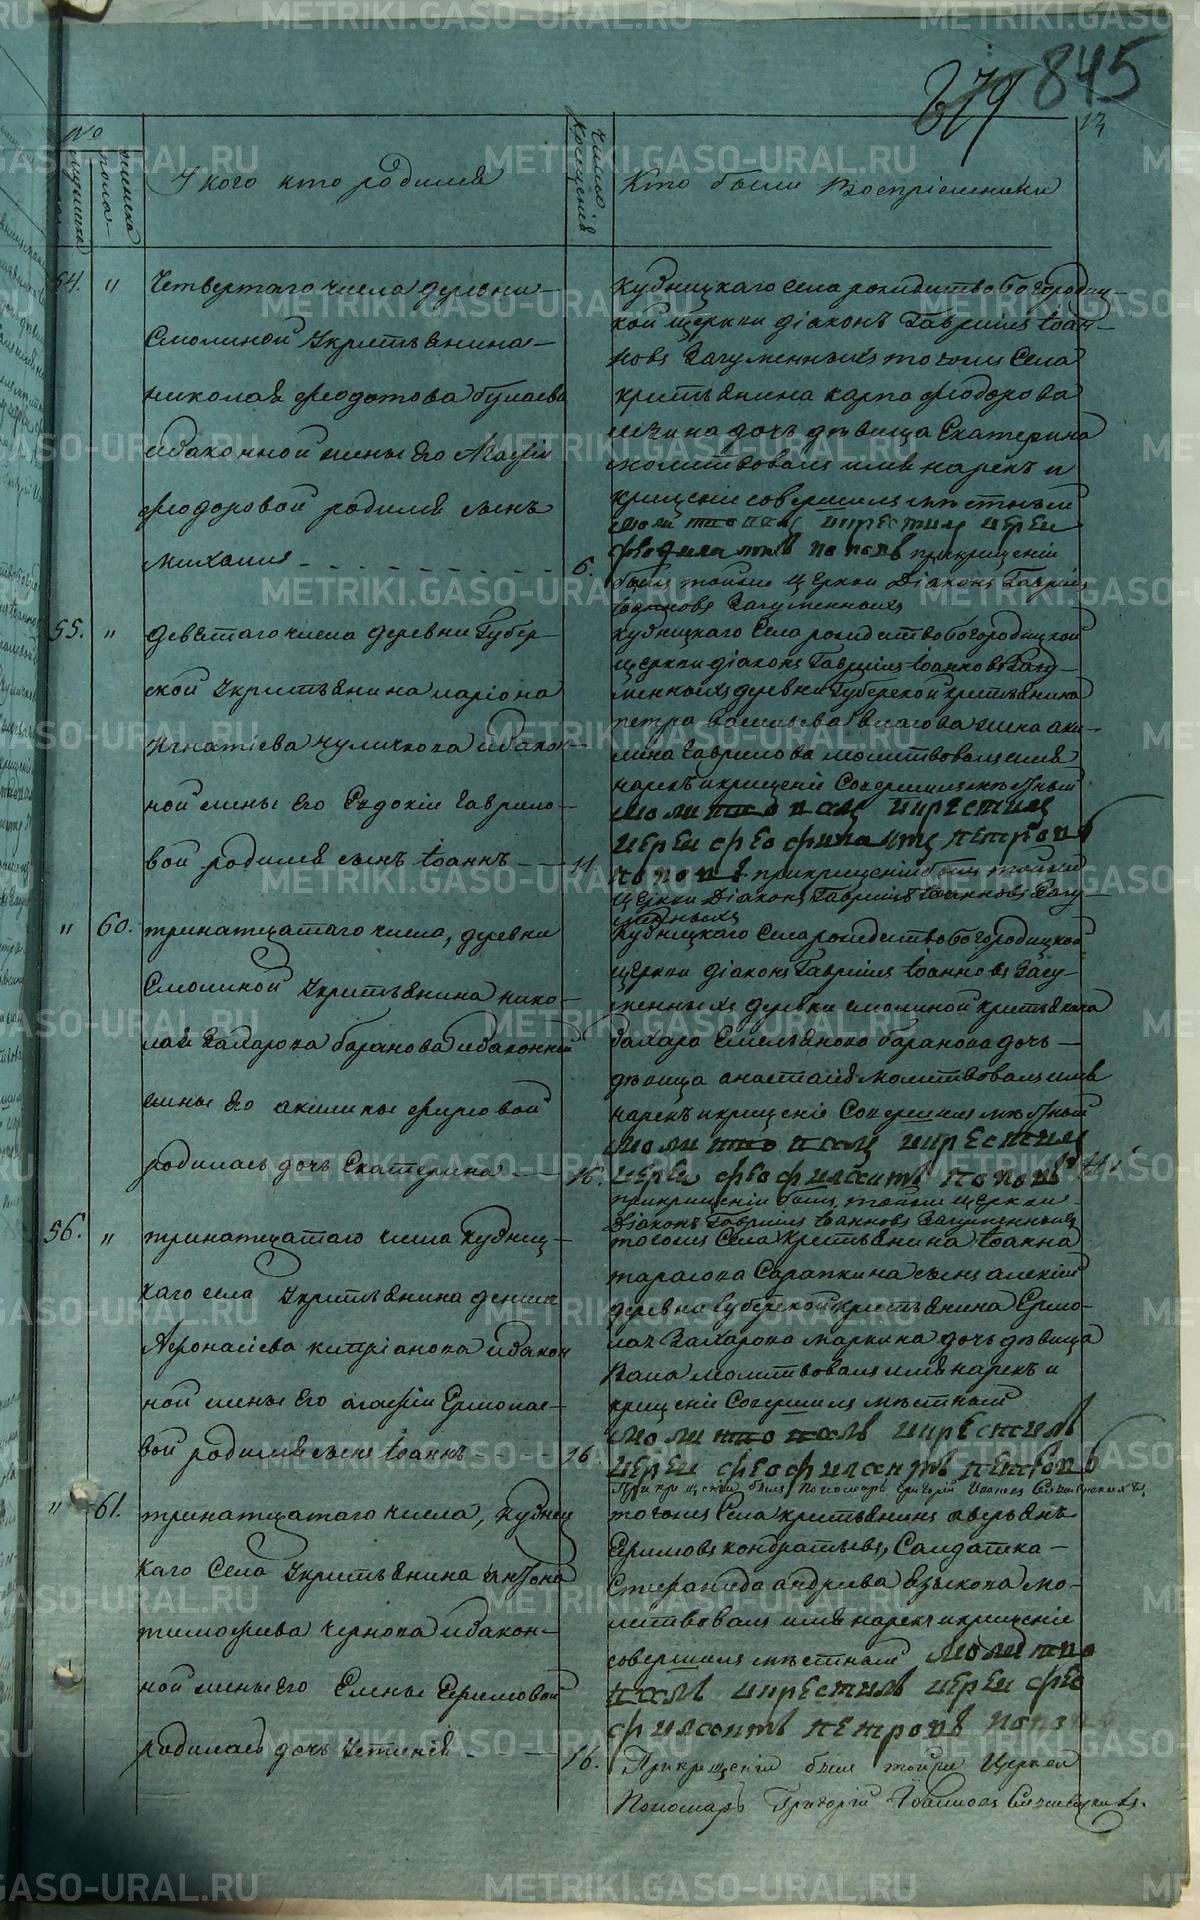 845
679
13
№
мужеска
пола
женска
У кого кто родился
Число крещенія
Кто были восприемники
54. "
Четвертаго числа деревни
Смолиной У крестьянина
Николая Феодотова Булаева
и законной жены его Агафіи
Феодоровой родился сынъ
Михаилъ 6.
Кудницкаго села рождество богородиц-
кой церкви діаконъ Гавриилъ Іоан-
новъ Загуменныхъ тогоже села
крестьянина Карпа Феодорова
дочь дѣвица Екатерина
молитвовалъ имя нарекъ и
крещеніе совершилъ мѣстный
молитвовалъ икрестилъ иереи
Попов прикрещеніи
былъ тойже церкви Діаконъ Гавриилъ
Іоанновъ Загуменныхъ
55. "
девятаго числа деревни Губер-
ской Укрестьянина Ларіона
Игнатіева Чуличкова изакон-
ной жены его Евдокіи Гаврило-
вой родился сынъ Іоаннъ 11
Кудницкаго Села рождество богородицкой
церкви діаконъ Гавриилъ Іоанновъ Загу-
менныхъ деревни Губерской крестьянина
Петра Васильева жена Аки-
лина Гаврилова молитвовалъ имя
нарекъ икрещеніе Совершилъ мѣстный
молитвовалъ икрестилъ
иереи феофилактъ петровъ
поповъ прикрещеніи былъ тойже
церкви Діаконъ Гавриилъ Іоанновъ Загу-
менныхъ
" 60.
тринатцатаго числа, деревни
Смолиной Укрестьянина Нико-
лая Захарова Баранова изаконной
жены его Акилины Фирсовой
родилась дочь Екатерина 16.
Кудницкаго Села рождество богородицкой
церкви діаконъ Гавриилъ Іоанновъ Загу-
менныхъ деревни Смолиной крестьянина
Захара Емельянова Баранова дочь
дѣвица Анастасія молитвовалъ имя
нарекъ икрещеніе Совершилъ мѣстный
молитвовалъ икрестилъ
иереи феофилактъ поповъ
прикрещеніи былъ тойже церкви
Діаконъ Гавриилъ Іоанновъ Загуменныхъ
56. "
тринатцатаго числа Кудниц-
каго села Укрестьянина Дениса
Афонасіева Кипріанова изакон
ной жены его Агафіи Ермолае-
вой родился сынъ Іоаннъ 16.
тогоже Села Крестьянина Іоанна
Тарасова Сарапкина сынъ Алексѣй
деревни Губерской крестьянина Ермо-
лая Захарова Маркина дочь дѣвица
молитвовалъ имя нарекъ и
крещеніе Совершилъ мѣстный
молитвовалъ икрестилъ
иереи феофилактъ петровъ
При крещеніи былъ Пономарь Григорій Іоанновъ
" 61.
тринатцатаго числа, Кудниц
каго Села Укрестьянина Антона
Тимофеева Чернова изакон-
ной жены его Елены Ефимовой
родилась дочь Устинія 16.
тогоже Села крестьянинъ Аверьянъ
Ефимовъ Кондратьевъ, Салдатка
Стефанида Андреева Языкова мо-
литвовалъ имя нарекъ икрещеніе
совершилъ мѣстный молитво
валъ икрестилъ иереи фео
филактъ петровъ попов
При крещеніи былъ тойже Церкви
Пономарь Григорій Іоанновъ
METRIKI.GASO-URAL.RU